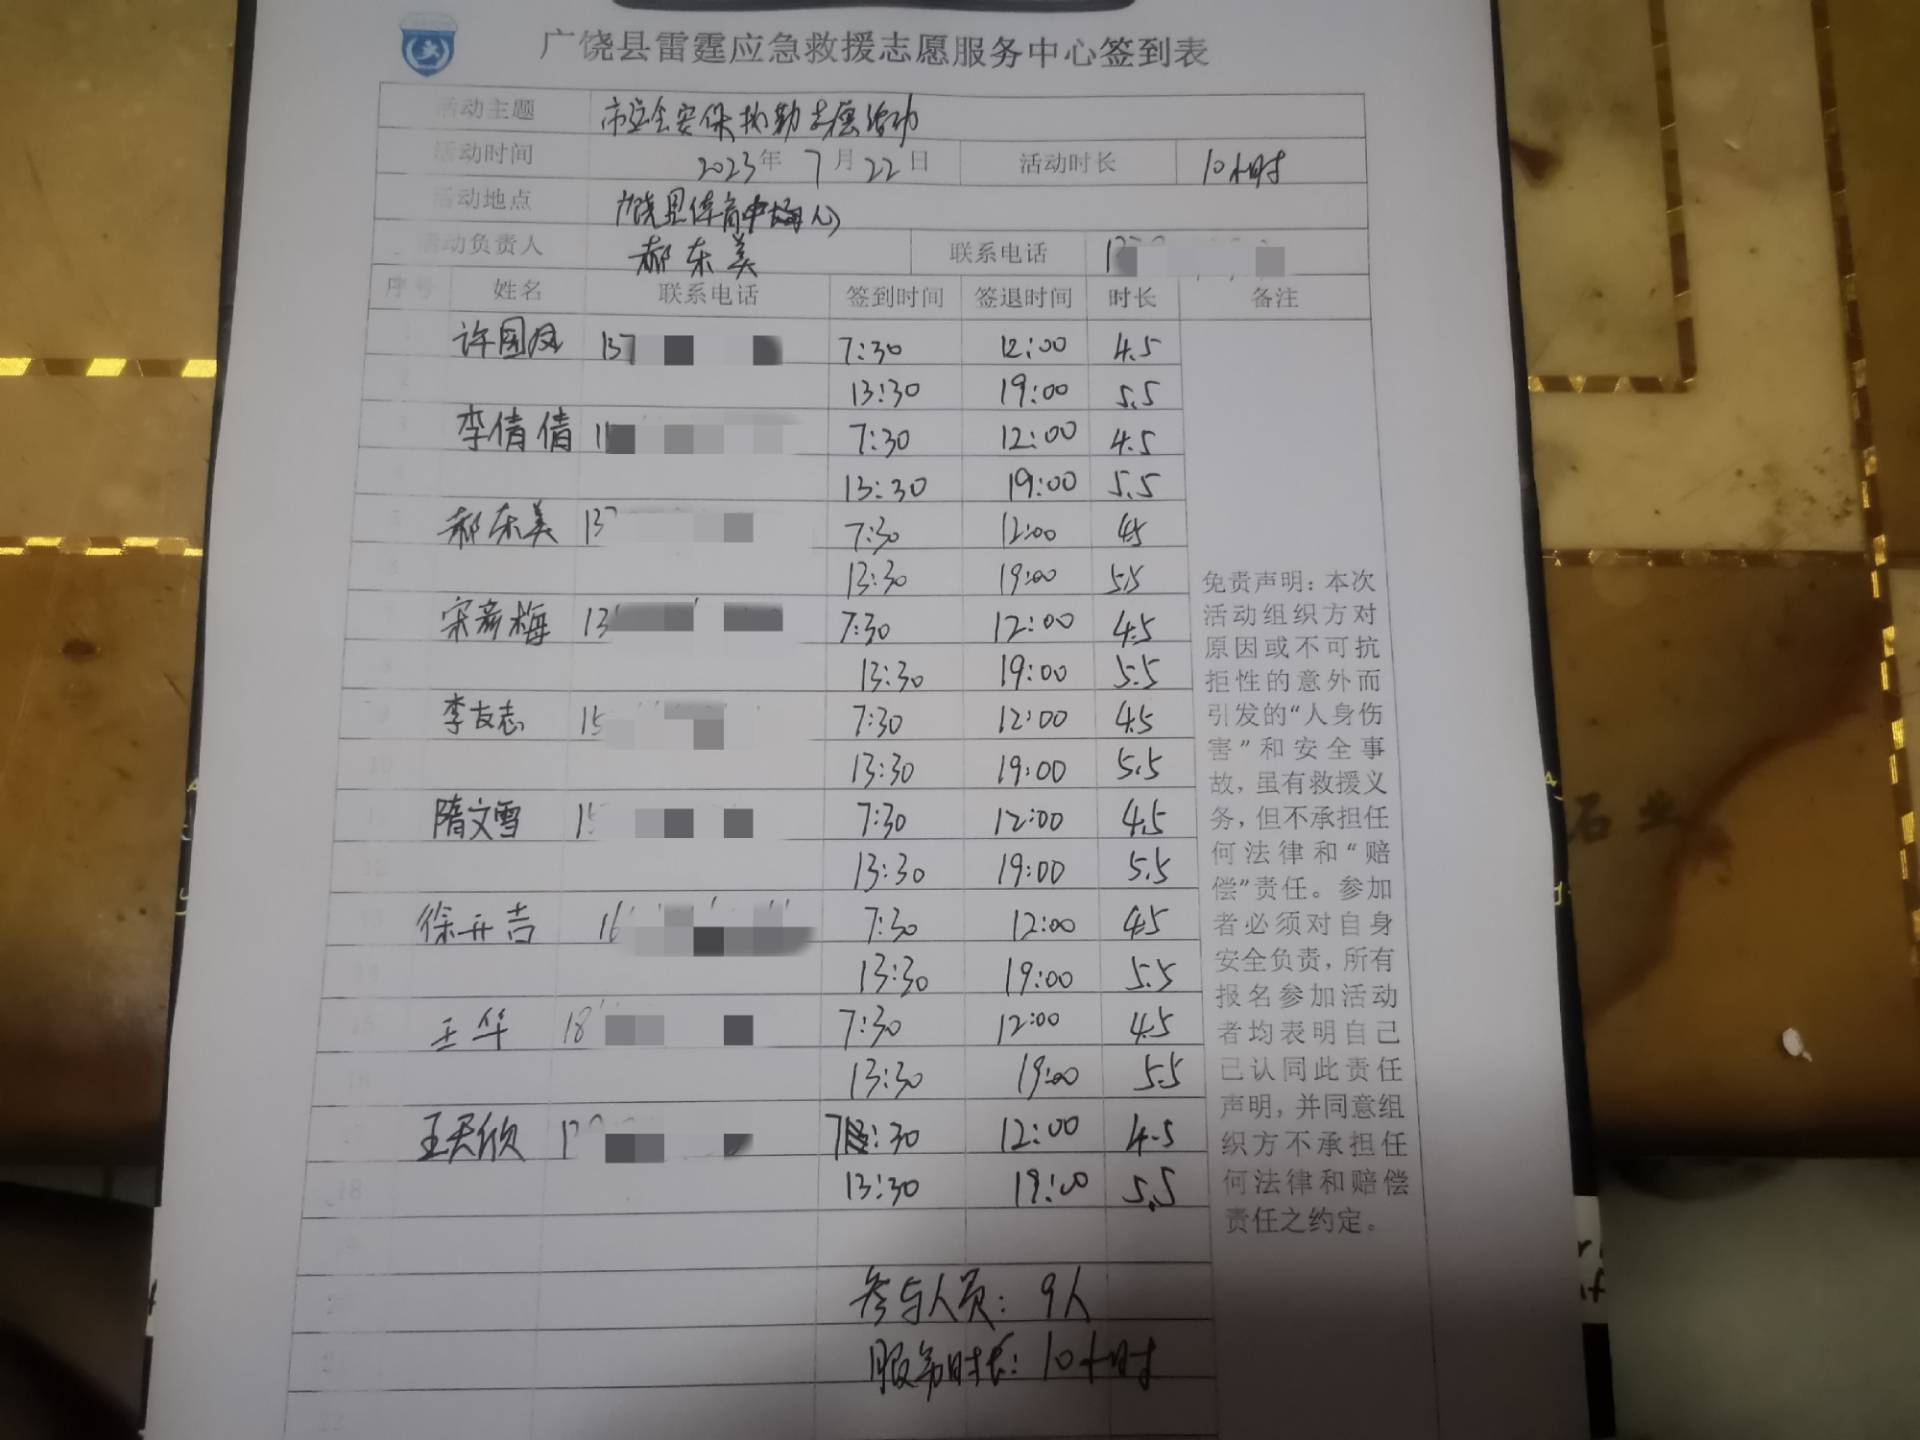 广饶县雷霆应急救援志愿服务中心签到表
活动主题 市运会安保执勤志愿活动
活动时间 2023年 7月22日 活动时长 10小时
活动地点 广饶县体育中心
活动负责人 郝东美 联系电话
序号 姓名 联系电话 签到时间 签退时间 时长 备注
1 许国凤 137 7:30 12:00 4.5
2 13:30 19:00 5.5
3 李倩倩 1 7:30 12:00 4.5
4 13:30 19:00 5.5
5 郝东美 137 7:30 12:00 4.5
6 13:30 19:00 5.5
7 宋彦梅 13 7:30 12:00 4.5
8 13:30 19:00 5.5
9 李友志 15 7:30 12:00 4.5
10 13:30 19:00 5.5
11 隋文雪 15 7:30 12:00 4.5
12 13:30 19:00 5.5
13 徐开吉 16 7:30 12:00 4.5
14 13:30 19:00 5.5
15 王华 18 7:30 12:00 4.5
16 13:30 19:00 5.5
17 王天欣 1 7:30 12:00 4.5
18 13:30 19:00 5.5
参与人员：9人
服务时长：10小时
免责声明：本次
活动组织方对
原因或不可抗
拒性的意外而
引发的“人身伤
害”和安全事
故，虽有救援义
务，但不承担任
何法律和“赔
偿”责任。参加
者必须对自身
安全负责，所有
报名参加活动
者均表明自己
已认同此责任
声明，并同意组
织方不承担任
何法律和赔偿
责任之约定。
石业